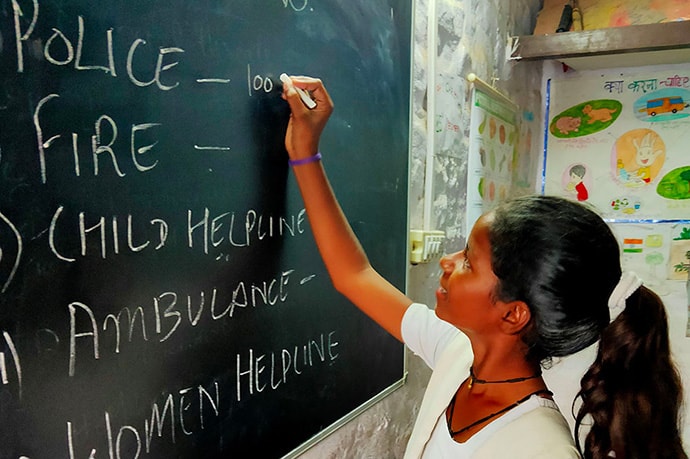 POLICE — 100
FIRE —
) CHILD HELPLINE
) AMBULANCE -
WOMEN HELPLINE
क्या करना चाहिए